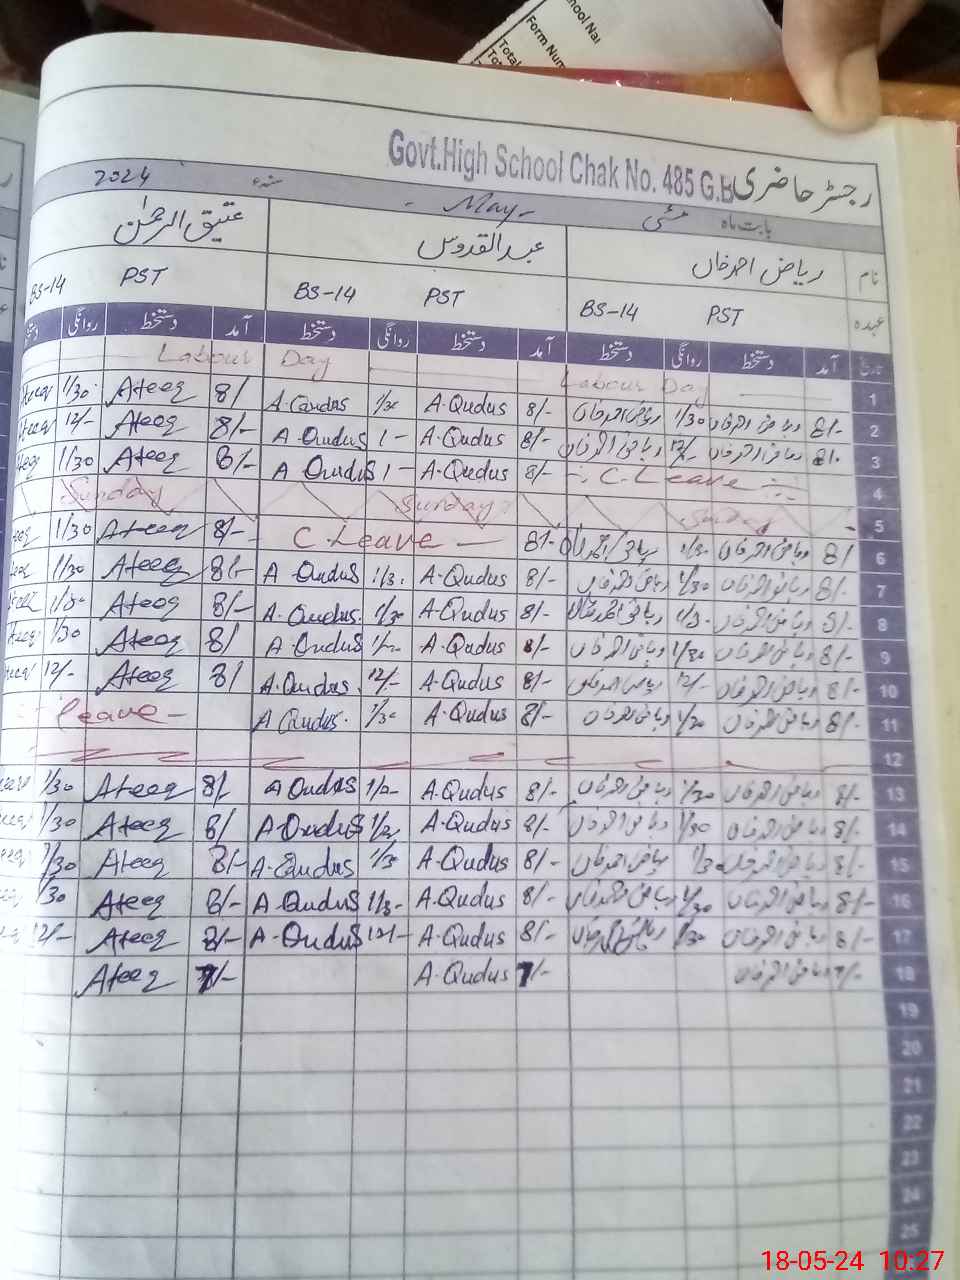 School Nai
Form Num
Total
Govt.High School Chak No. 485 G.B رجسٹر حاضری
بابت ماہ مئی - May - سنہء 2024
نام ریاض احمد خاں عبدالقدوس عتیق الرحمٰن
عہدہ PST BS-14 PST BS-14 PST BS-14
تاریخ آمد دستخط روانگی دستخط آمد دستخط روانگی دستخط آمد دستخط روانگی
1 Labour Day Labour Day
2 8/- ریاض احمد خاں 1/30 ریاض احمد خاں 8/- A.Qudus 1/30 A.Qudus 8/ Ateeq 1/30
3 8/- ریاض احمد خاں 12/- ریاض احمد خاں 8/- A.Qudus 1- A Qudus 8/- Ateeq 12/-
4 C.Leave 8/- A.Qudus 1- A Qudus 8/- Ateeq 1/30
5 Sunday Sunday Sunday
6 8/ ریاض احمد خاں 1/30 ریاض احمد خاں 8/- C.Leave 8/- Ateeq 1/30
7 8/- ریاض احمد خاں 1/30 ریاض احمد خاں 8/- A.Qudus 1/30 A Qudus 8/- Ateeq 1/30
8 8/- ریاض احمد خاں 1/30 ریاض احمد خاں 8/- A.Qudus 1/30 A.Qudus 8/- Ateeq 1/30
9 8/- ریاض احمد خاں 1/30 ریاض احمد خاں 8/- A.Qudus A Qudus 8/ Ateeq 1/30
10 8/- ریاض احمد خاں 12/- ریاض احمد خاں 8/- A.Qudus 12/- A.Qudus 8/ Ateeq 12/-
11 8/- ریاض احمد خاں 1/30 ریاض احمد خاں 8/- A.Qudus 1/30 A Qudus. leave
12
13 8/- ریاض احمد خاں 1/30 ریاض احمد خاں 8/- A.Qudus A Qudus 8/ Ateeq 1/30
14 8/- ریاض احمد خاں 1/30 ریاض احمد خاں 8/- A.Qudus A Qudus 8/ Ateeq 1/30
15 8/- ریاض احمد خاں 1/30 ریاض احمد خاں 8/- A.Qudus 1/30 A.Qudus 8/- Ateeq 1/30
16 8/- ریاض احمد خاں 1/30 ریاض احمد خاں 8/- A.Qudus A Qudus 8/- Ateeq 1/30
17 8/- ریاض احمد خاں 1/30 ریاض احمد خاں 8/- A.Qudus 12/- A-Qudus 8/- Ateeq 12/-
18 7/- ریاض احمد خاں 7/- A.Qudus 7/- Ateeq
19
20
21
22
23
24
25
18-05-24 10:27